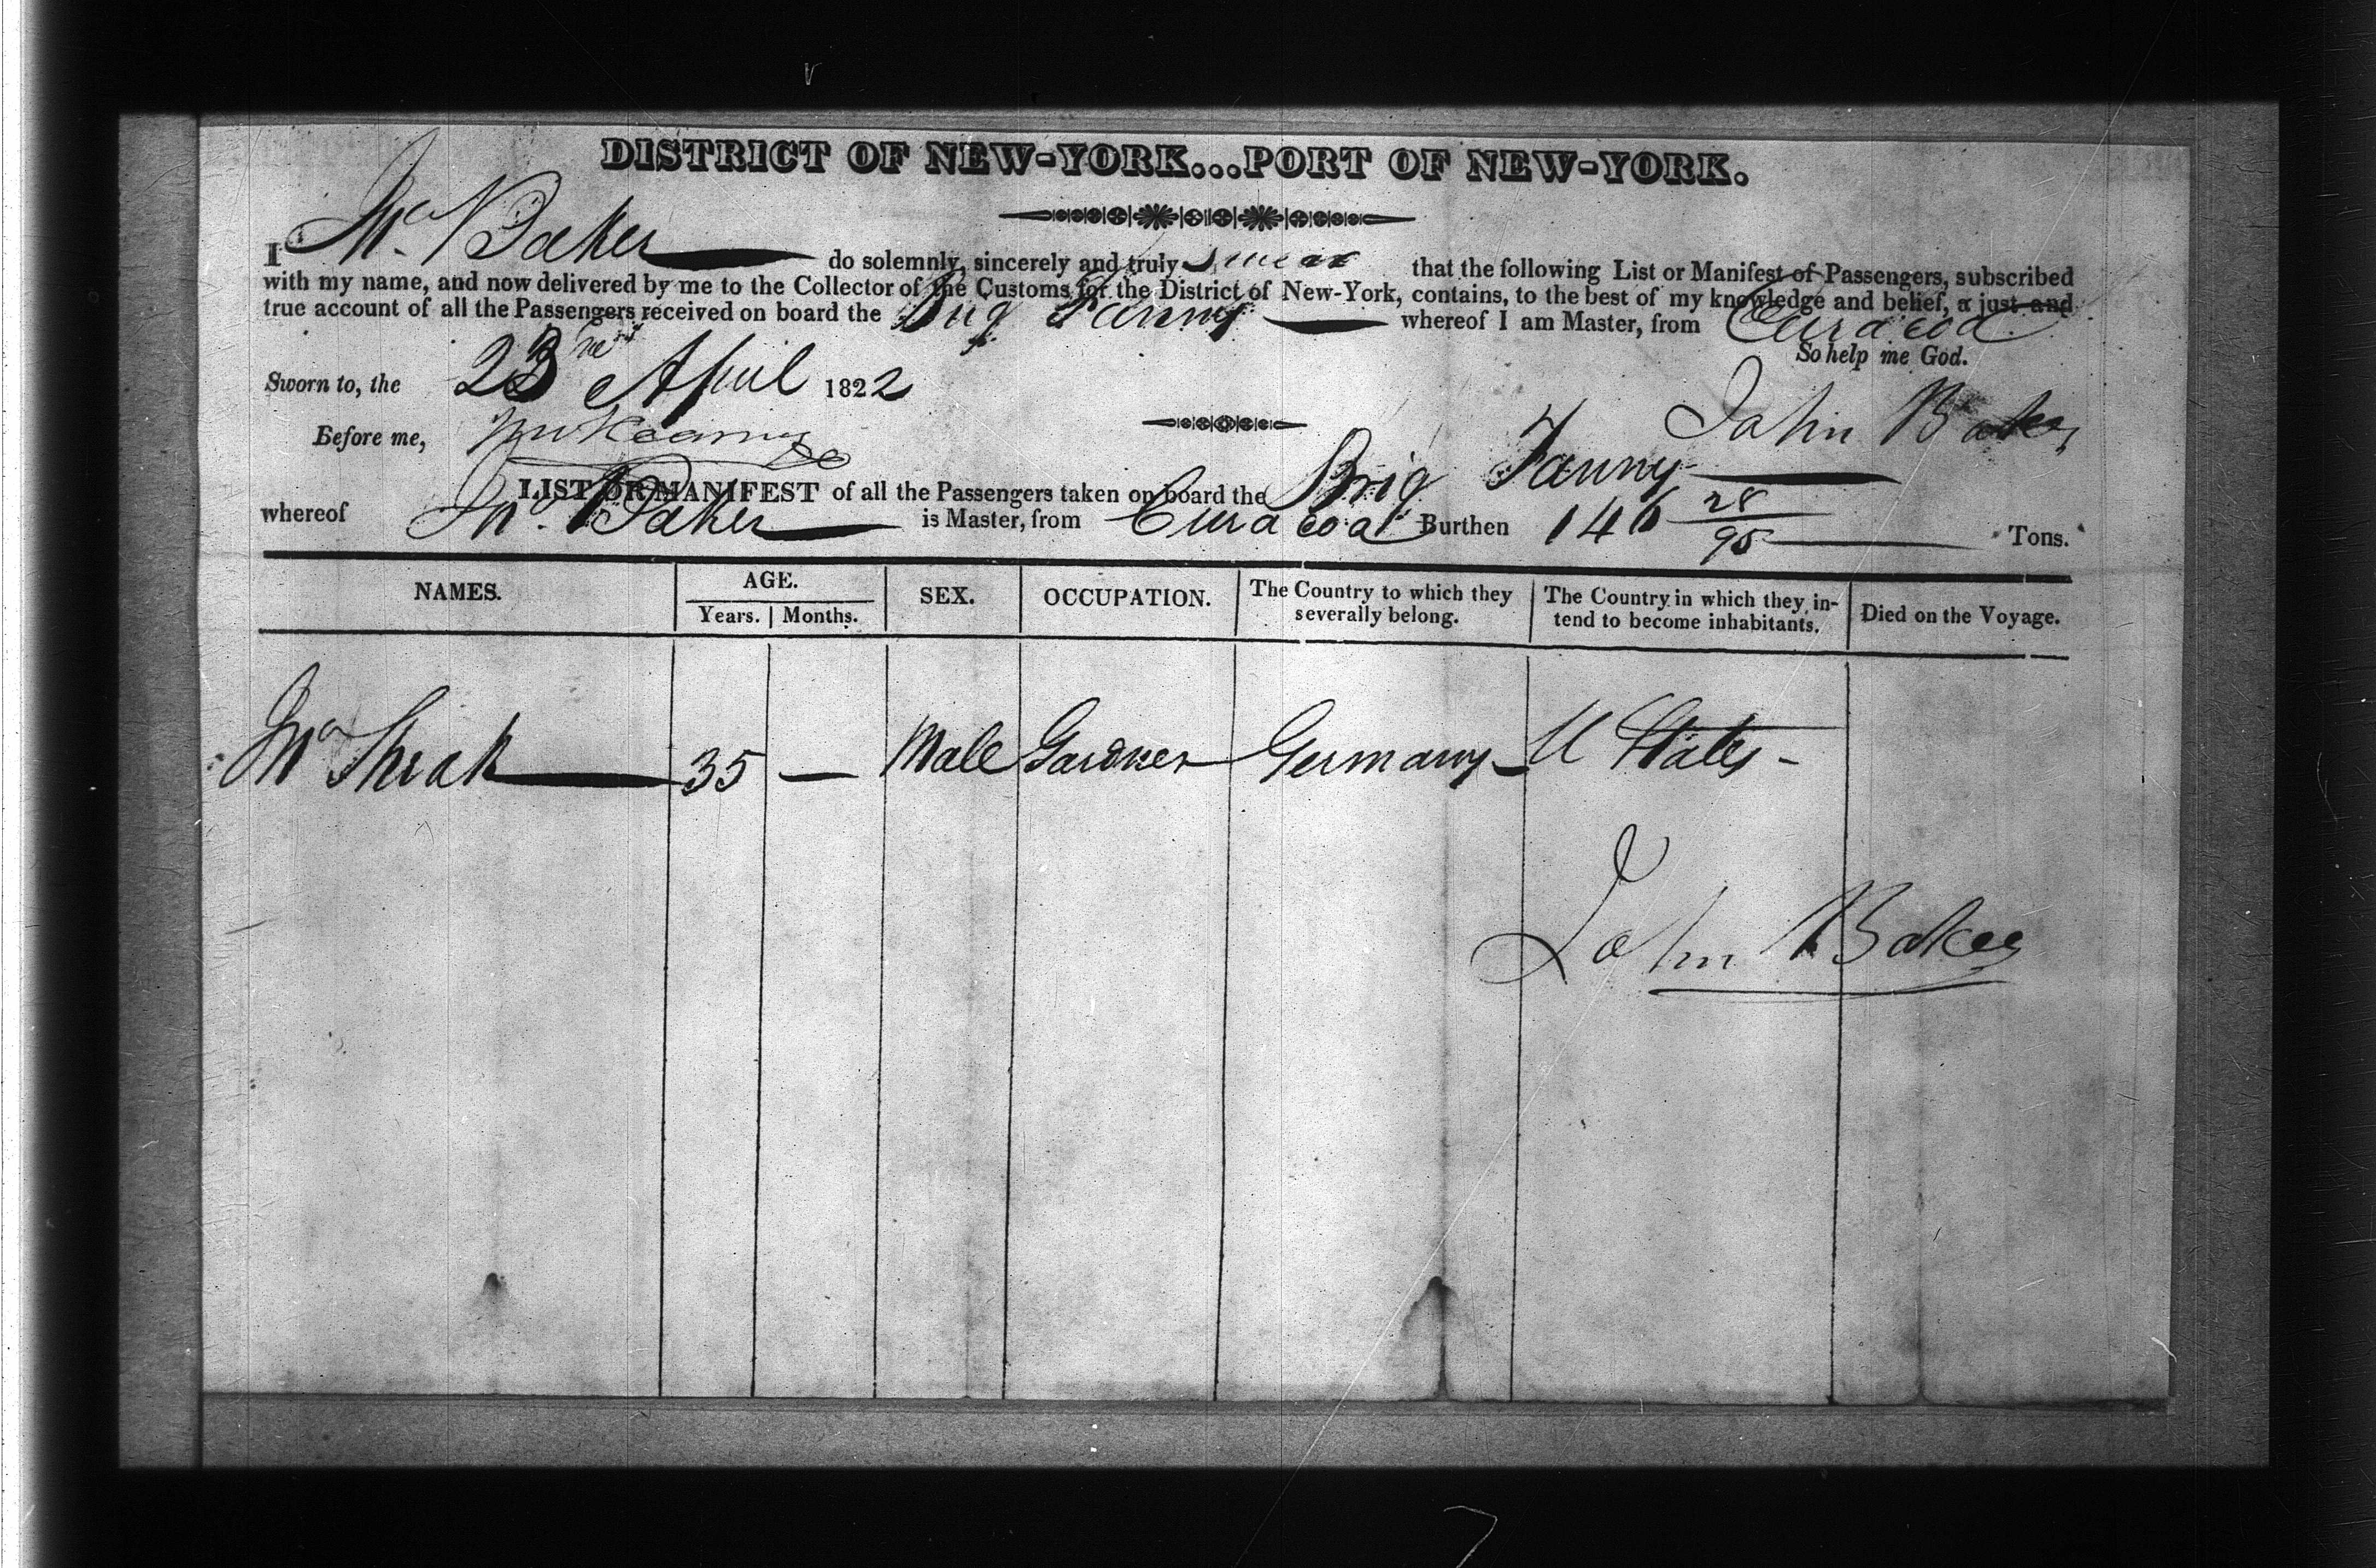 DISTRICT OF NEW-YORK...PORT OF NEW-YORK.
I Jno. Baker do solemnly, sincerely and truly swear that the following List or Manifest of Passengers, subscribed
with my name, and now delivered by me to the Collector of the Customs for the District of New-York, contains, to the best of my knowledge and belief, a just and
true account of all the Passengers received on board the Brig Fanny whereof I am Master, from Curacoa
So help me God.
Sworn to, the 23 April 1822
John Baker
Before me,
LIST OR MANIFEST of all the Passengers taken on board the Brig Fanny
whereof Jno. Baker is Master, from Curacoa Burthen 146 28/95 Tons.
NAMES. AGE. SEX. OCCUPATION. The Country to which they severally belong. The Country in which they intend to become inhabitants. Died on the Voyage.
Years. Months.
Jno 35 — Male Gardner Germany U States
John Baker